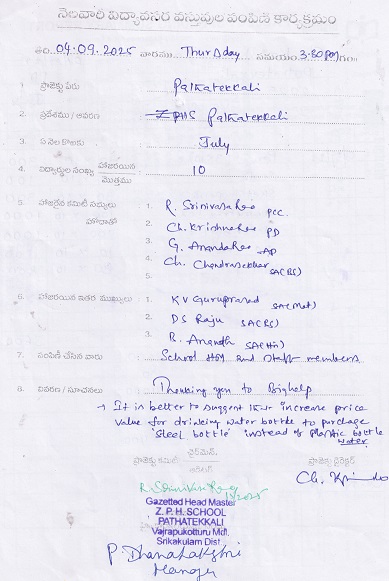 నెలవారీ విద్యావసర వస్తువుల పంపిణీ కార్యక్రమం
తేది. 04.09.2025 వారము Thursday సమయం 3.30PM గం॥
1. ప్రాజెక్టు పేరు Pathatekkali
2. ప్రదేశము / ఆవరణ ZPHS Pathatekkali
3. ఏ నెల కొరకు July
4. విద్యార్థుల సంఖ్య హాజరయిన మొత్తము 10
5. హాజరైన కమిటీ సభ్యులు 1. R. Srinivasa Rao PCC.
హోదాతో 2. Ch. Krishna Rao PD
3. G. Ananda Rao AP
4. Ch. Chandrasekhar SA(BS)
5.
6. హాజరయిన ఇతర ముఖ్యులు 1. KV Guruprasad SA(Mat)
2. DS Raju SA(BS)
3. B. Anandh SA(Hin)
7. పంపిణీ చేసిన వారు School HM and staff members
8. వివరణ / సూచనలు Thanking you to Bighelp
→ It is better to suggest increase price
value for drinking water bottle to purchage
'steel bottle' instead of plastic bottle
water
ప్రాజెక్టు కమిటీ ఛైర్మన్, ప్రాజెక్టు డైరెక్టర్
Gazetted Head Master
Z. P. H. SCHOOL
PATHATEKKALI
Vajrapukotturu Mdl,
Srikakulam Dist.
P. Dhanalakshmi
Manager